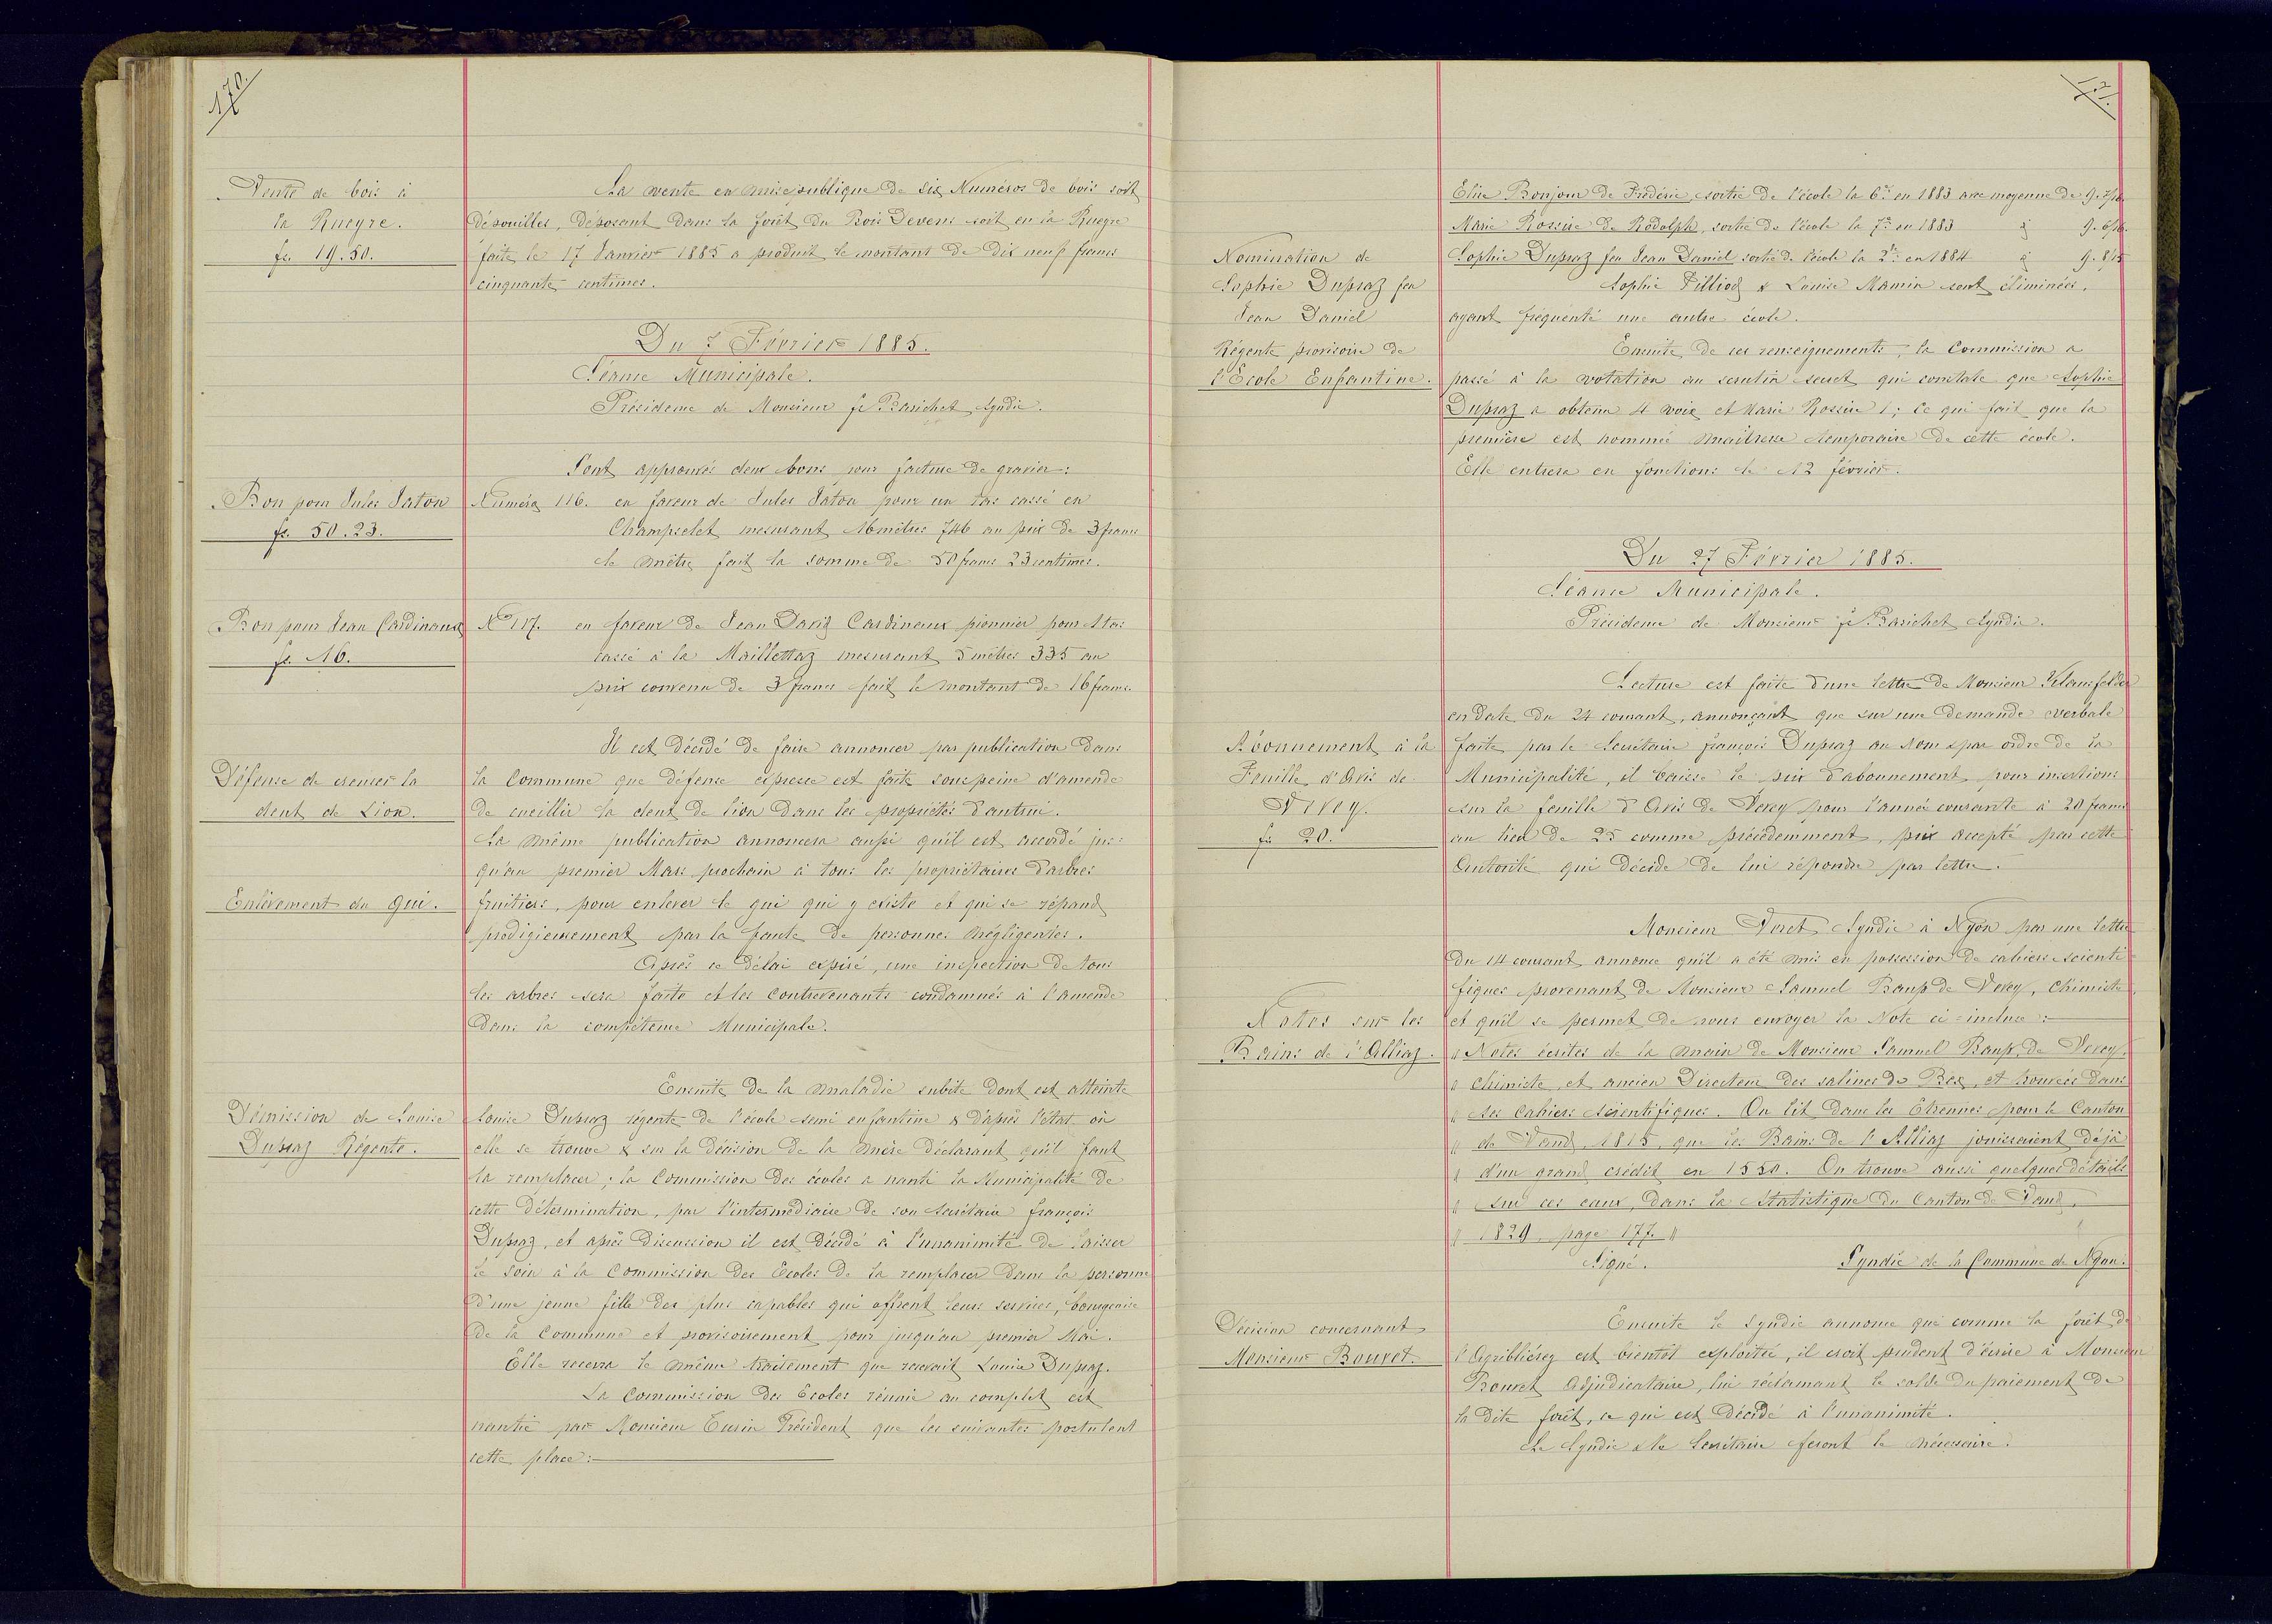 170.
Vente de bois à
la Rueyre.
fr. 19.50.
La vente en mise publique de six Numéros de bois soit
dépouilles, déposent dans la forêt du Bois Devens soit en la Rueyre
faite le 17 Janvier 1885 a produit le montant de dix neuf francs
cinquante centimes.
Du 7 Février 1885.
Séance Municipale.
Présidence de Monsieur fs Barichet Syndic.
Sont approuvés deux bons pour facture de gravier:
Bon pour Jules Jaton
fr. 50.23.
Numéro 116. en faveur de Jules Jaton pour un tas cassé en
Champselet mesurant 16 mètres 746 au prix de 3 francs
le mètre fait la somme de 50 francs 23 centimes.
Bon pour Jean Cardinaux
fr. 16.
No 117. en faveur de Jean David Cardinaux pionnier pour 1 tas
cassé à la Maillettaz mesurant 5 mètres 335 au
prix convenu de 3 francs fait le montant de 16 francs.
Il est décidé de faire annoncer par publication dans
Défense de creuser la
dent de Lion.
la Commune que défense expresse est faite sous peine d'amende
de cueillir la dent de lion dans les propriétés d'autrui.
La même publication annoncera aussi qu'il est accordé jus=
qu'au premier Mars prochain à tous les propriétaires d'arbres
Enlèvement du gui.
fruitiers, pour enlever le gui qui y existe et qui se répand
prodigieusement par la faute de personnes négligentes.
Après ce délai expiré, une inspection de tous
les arbres sera faite et les contrevenants condamnés à l'amende
dans la compétence Municipale.
Ensuite de la maladie subite dont est atteinte
Démission de Louise
Dupraz Régente.
Louise Dupraz régente de l'école semi enfantine & d'après l'état où
elle se trouve & sur la décision de la mère déclarant qu'il faut
la remplacer; la Commission des écoles a nanti la Municipalité de
cette détermination, par l'intermédiaire de son Secrétaire françois
Dupraz, et après discussion il est décidé à l'unanimité de laisser
le soin à la Commission des Ecoles de la remplacer dans la personne
d'une jeune fille des plus capables qui offrent leurs services, bourgeoise
de la Commune et provisoirement pour jusqu'au premier Mai.
Elle recevra le même traitement que recevait Louise Dupraz.
La Commission des Ecoles réunie au complet est
nantie par Monsieur Cusin Président que les suivantes postulent
cette place:
171.
Elise Bonjour de Frédéric, sortie de l'école la 6e en 1883 avec moyenne de 9. 7/16.
Marie Rossire de Rodolph, sortie de l'école la 7e en 1883 " 9. 6/16.
Nomination de
Sophie Dupraz feu
Jean Daniel
Régente provisoire de
l'Ecole Enfantine.
Sophie Dupraz feu Jean Daniel sortie de l'école la 2e en 1884 " 9. 8/15
Sophie Pilliod & Louise Mamin sont éliminées,
ayant fréquenté une autre école.
Ensuite de ces renseignements, la Commission a
passé à la votation au scrutin secret qui constate que Sophie
Dupraz a obtenu 4 voix et Marie Rossire 1; ce qui fait que la
première est nommée maîtresse temporaire de cette école.
Elle entrera en fonctions le 12 février.
Du 27 Février 1885.
Séance Municipale.
Présidence de Monsieur fs Barichet Syndic.
Lecture est faite d'une lettre de Monsieur Klausfelder
en date du 24 courant, annonçant que sur une demande verbale
Abonnement à la
Feuille d'Avis de
Vevey.
fr. 20.
faite par le Secrétaire françois Dupraz au nom & par ordre de la
Municipalité, il baisse le prix d'abonnement pour insertions
sur la feuille d'Avis de Vevey pour l'année courante à 20 francs
au lieu de 25 comme précédemment, prix accepté par cette
Autorité qui décide de lui répondre par lettre.
Monsieur Veret Syndic à Nyon par une lettre
du 14 courant annonce qu'il a été mis en possession de cahiers scienti=
fiques provenant de Monsieur Samuel Baup de Vevey, Chimiste,
Notes sur les
Bains de l'Alliaz.
et qu'il se permet de nous envoyer la Note ci-incluse:
" Notes écrites de la main de Monsieur Samuel Baup, de Vevey.
" chimiste, et ancien Directeur des salines de Bex, et trouvées dans
" ses Cahiers scientifiques. On lit dans les Etrennes pour le Canton
" de Vaud, 1815, que les Bains de l'Alliaz jouissaient déjà
" d'un grand crédit en 1550. On trouve aussi quelques détails
" sur ces eaux, dans la Statistique du Canton de Vaud,
" 1829, page 177. "
Signé. Syndic de la Commune de Nyon.
Décision concernant
Monsieur Bouvet.
Ensuite le Syndic annonce que comme la forêt de
l'Agribliérez est bientôt exploitée, il croit prudent d'écrire à Monsieur
Bouvet Adjudicataire, lui réclamant le solde du paiement de
la dite forêt, ce qui est décidé à l'unanimité.
Le Syndic & le Secrétaire feront le nécessaire.